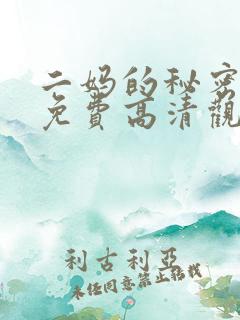 二妈的秘密
免费高清觀
利古利亞
未经同意禁止转载